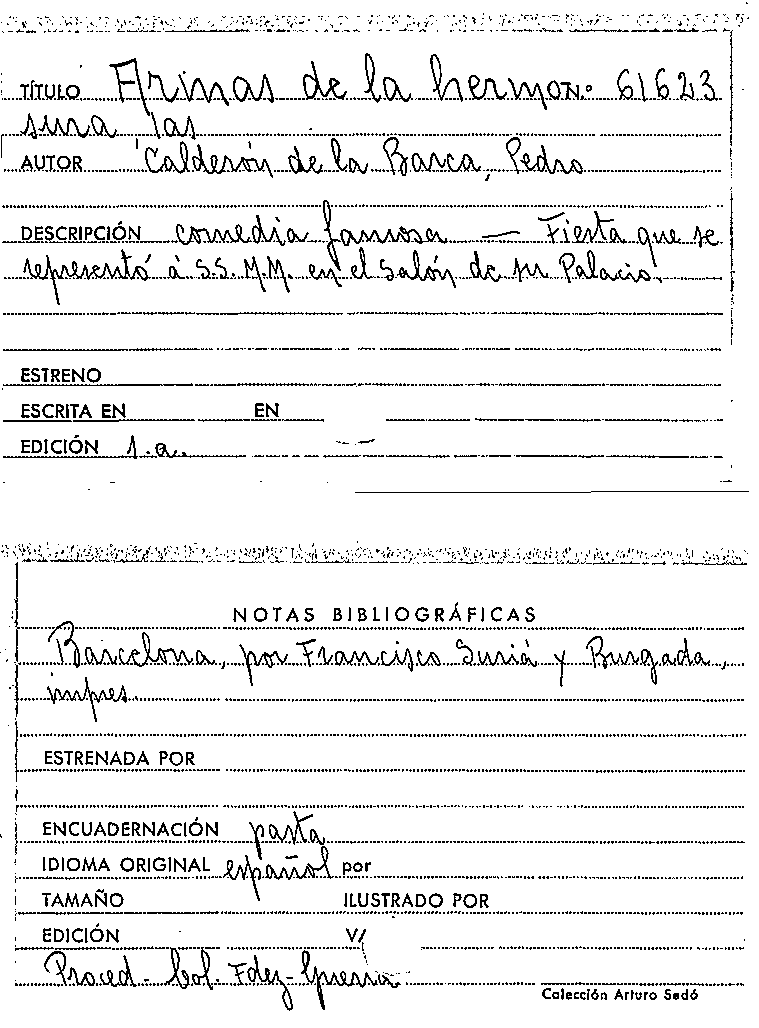 TÍTULO Armas de la hermo N.º 61623
sura las
AUTOR Calderón de la Barca, Pedro
DESCRIPCIÓN comedia famosa — Fiesta que se
representó á S.S. M.M. en el Salón de su Palacio.
ESTRENO
ESCRITA EN EN
EDICIÓN 1.a. —
NOTAS BIBLIOGRÁFICAS
Barcelona, por Francisco Suriá y Burgada,
impres.
ESTRENADA POR
ENCUADERNACIÓN pasta
IDIOMA ORIGINAL español por
TAMAÑO ILUSTRADO POR
EDICIÓN V/
Proced- Col. Fdez-Guerra
Colección Arturo Sedó